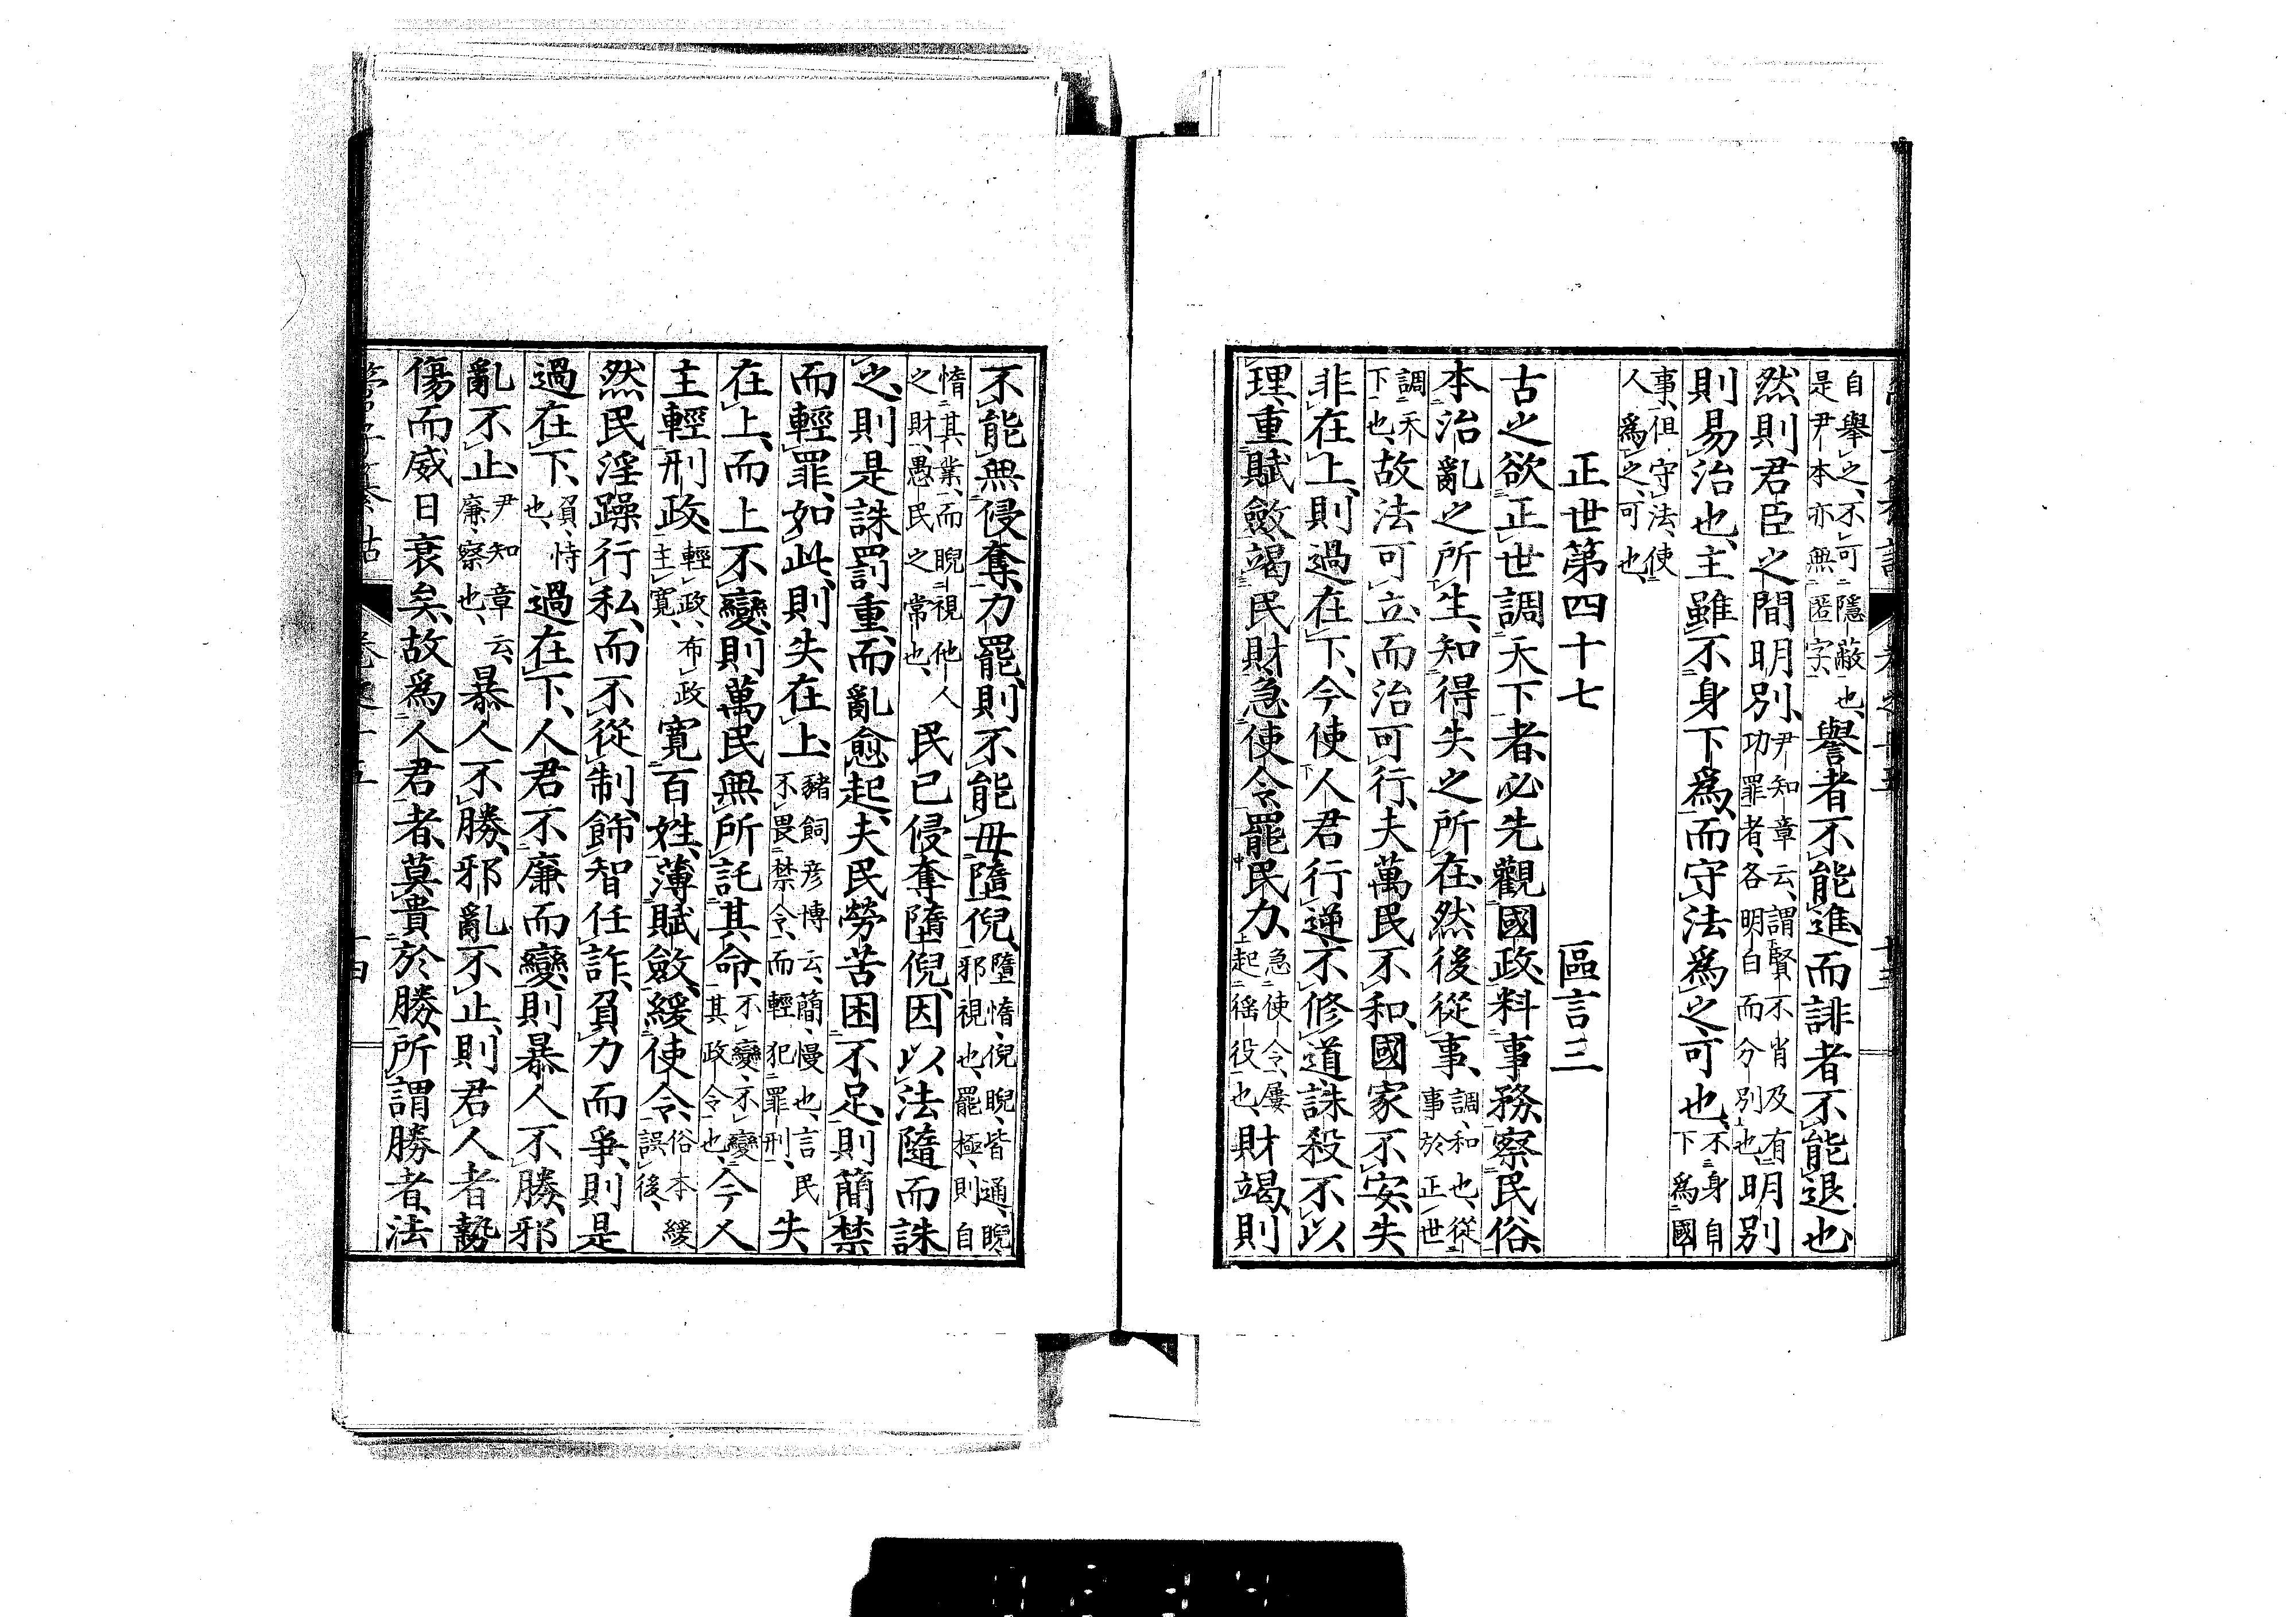 自舉之、不可隱蔽也、是尹本亦無匿字、譽者不能進、而誹者不能退也、
然則君臣之間明別、尹知章云、謂賢不肖及有功罪者、各明白而分別也、明別
則易治也、主雖不身下爲、而守法爲之可也、不身自下爲國
事、但守法、使人爲之、可也、
正世第四十七　區言三
古之欲正世調天下者、必先觀國政、料事務、察民俗、
本治亂之所生、知得失之所在、然後從事、調、和也、從事於正世
調天下也、故法可立、而治可行、夫萬民不和、國家不安、失
非在上、則過在下、今使人君行逆不修道、誅殺不以
理、重賦斂、竭民財、急使令、罷民力、急使令、屢起徭役也、財竭、則
不能無侵奪、力罷、則不能毋墮倪、墮惰、倪睨、皆通、睨邪視也、罷極、則自
惰其業、而睨視他人之財、愚民之常也、民已侵奪墮倪、因以法隨而誅
之、則是誅罰重、而亂愈起、夫民勞苦困不足、則簡禁
而輕罪、如此、則失在上、豬飼彥博云、簡、慢也、言民不畏禁令、而輕犯罪刑、失
在上、而上不變、則萬民無所託其命、不變、不變其政令也、今人
主輕刑政、輕政、布政主寬、寬百姓、薄賦斂、緩使令、俗本緩誤後、
然民淫躁行私、而不從制、飾智任詐、負力而爭、則是
過在下、負、恃也、過在下、人君不廉而變、則暴人不勝、邪
亂不止、尹知章云、廉、察也、暴人不勝、邪亂不止、則君人者勢
傷、而威日衰矣、故爲人君者、莫貴於勝、所謂勝者、法